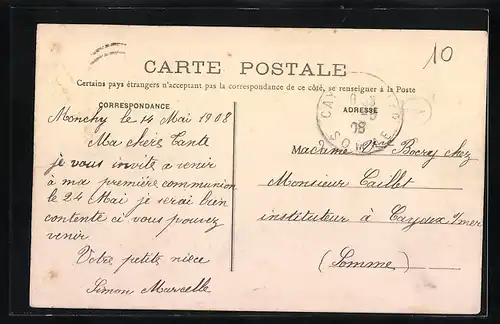 10
CARTE POSTALE
Certains pays étrangers n'acceptant pas la correspondance de ce côté, se renseigner à la Poste
CORRESPONDANCE
ADRESSE
Monchy le 14 Mai 1908
Ma chère Tante
je vous invite a venir
à ma première communion
le 24 Mai je serai bien
contente ci vous pouvez
venir
Votre petite nièce
Simon Marcelle
Madame Vve Bocry chez
Monsieur Caillet
instituteur à Cayeux s/mer
(Somme)
CAY
08
SOMME